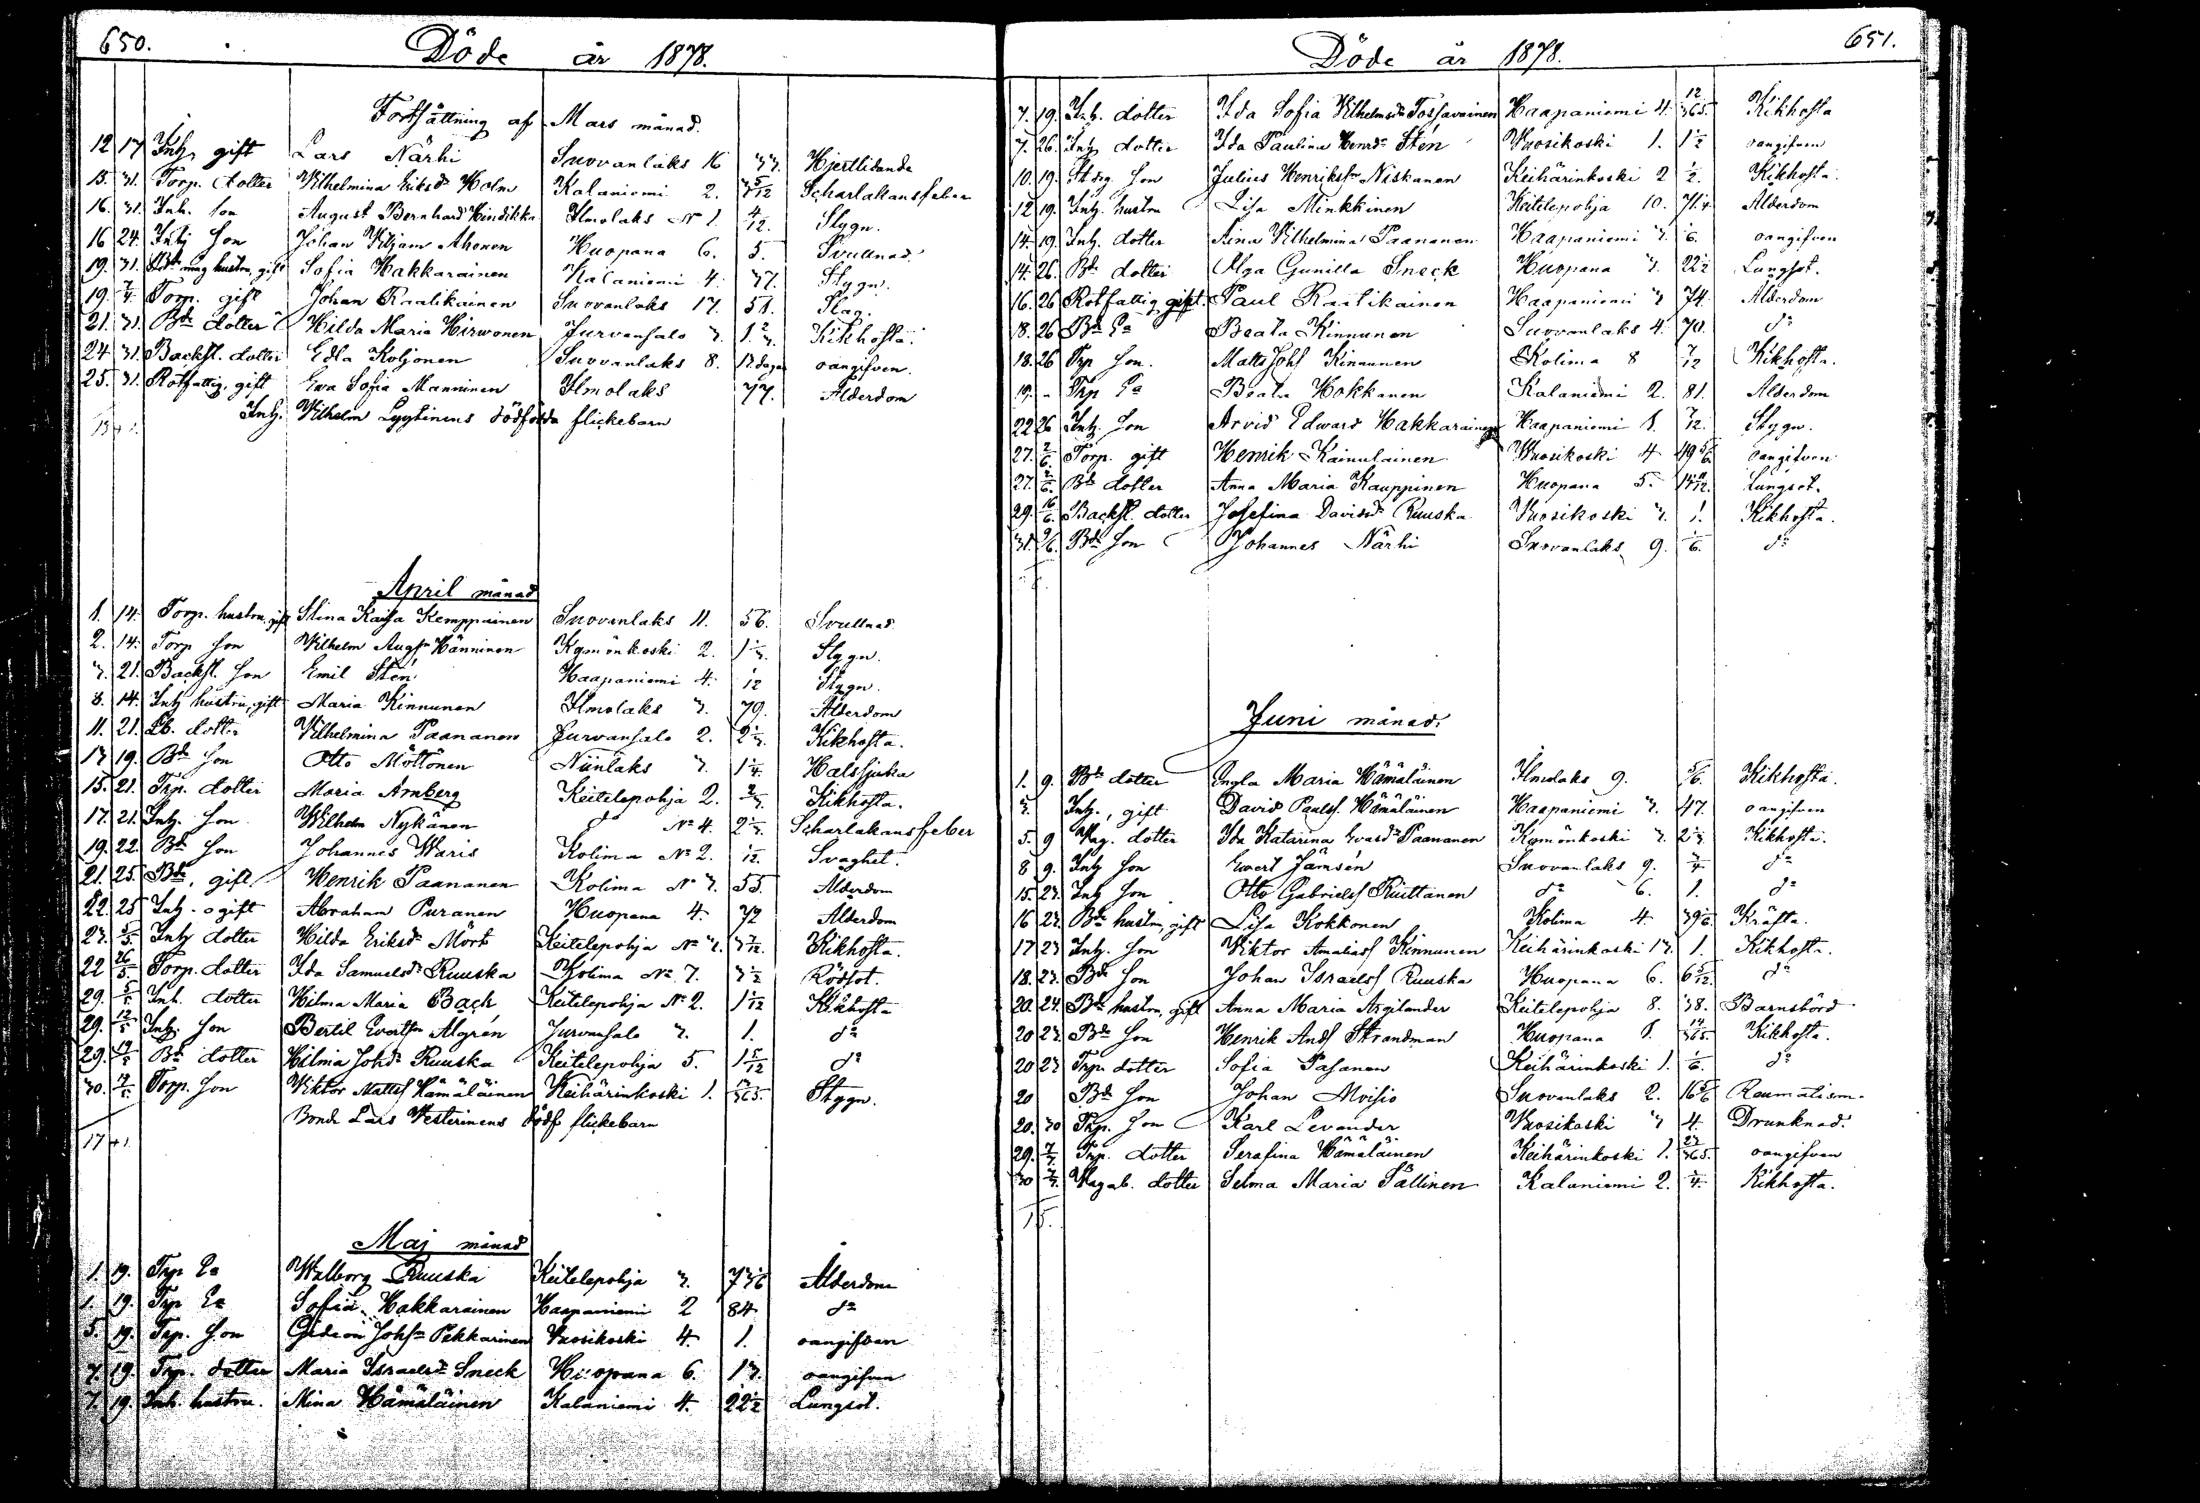 650.
Döde år 1878.
Fortsättning af Mars månad.
12 17 Inh. gift Lars Närhi Suovanlaks 16 Hjertlidande
15. 31. Torp. dotter Vilhelmina Eriksdr Holm Kalaniemi 2. 3 5/12 Scharlakansfeber
16. 31. Inh. son August Bernhard Hindikka Ilmolaks No 1. 4/12. Stygn.
16 24. Inh son Johan Viljam Ahonen Huopana 6. 5. Svullnad
19. 31. hustru, gift Sofia Hakkarainen Kalaniemi 4. 37. Stygn.
19. 7/4 Torp. gift Johan Raatikainen Suovanlaks 17. 51. Slag.
21. 31. Bde dotter Hilda Maria Hirwonen Jurvansalo 3. 1 2/3. Kikhosta.
24 31. Backst. dotter Edla Koljonen Suovanlaks 8. 12 dagar oangifven.
25. 31. Rotfattig, gift Ewa Sofia Manninen Ilmolaks 77. Ålderdom
Inh. Vilhelm Lyytinens dödfödda flickebarn
13 + 1.
April månad
1. 14. Torp. hustru, gift Stina Kaisa Kemppainen Suovanlaks 11. 56. Svullnad
2. 14. Torp son Vilhelm Augsn Hänninen Kymönkoski 2. 1 1/3. Stygn.
3. 21. Backst. son Emil Stén Haapaniemi 4. 1/12 Stygn.
8. 14. Inh hustru, gift Maria Kinnunen Ilmolaks 3. 79. Ålderdom
11. 21. Lb. dotter Vilhelmina Paananen Jurvansalo 2. 2 1/3. Kikhosta.
13 19. Bde son Otto Möttönen Niinlaks 3. 1 1/4. Halssjuka
15. 21. Trp. dotter Maria Arnberg Keitelepohja 2. 2/3. Kikhosta.
17. 21. Inh. son Wilhelm Nykänen do No 4. 2 1/3. Scharlakansfeber
19. 22. Bde son Johannes Waris Kolima No 2. 1/12. Svaghet.
21. 25. Bde, gift Henrik Paananen Kolima No 3. 55. Ålderdom
22. 25 Inh. ogift Abraham Puranen Huopana 4. 72 Ålderdom
23. 5/5. Inh dotter Hilda Eriksdr Mört Keitelepohja No 3. 3 7/12. Kikhosta.
22 26/5 Torp. dotter Ida Samuelsdr Ruuska Kolima No 7. 3 1/2 Rödsot.
29. 5/5. Inh. dotter Hilma Maria Back Keitelepohja No 2. 1 1/12 Kikhosta
29. 12/5 Inh. son Bertil Evertsn Algrén Jurvansalo 3. 1. do
29. 19/5 Bde dotter Hilma Johsdr Ruuska Keitelepohja 5. 1 5/12 do
30. Torp. son Viktor Mattss Hämäläinen Keihärinkoski 1. 13/365. Stygn.
Bonde Lars Vesterinens dödf flickebarn
17 + 1.
Maj månad
1. 19. Trp Ea Walborg Ruuska Keitelepohja 3. 73 1/6 Ålderdom
1. 19. Trp Ea Sofia Hakkarainen Haapaniemi 2 84 do
5. 19. Trp. son Gideon Johsn Pekkarinen Vuosikoski 4. 1. oangifven
7. 19. Trp. dotter Maria Israelsdr Sneck Huopana 6. 13. oangifven
7. 19. Inh. hustru. Mina Hämäläinen Kalaniemi 4. 22 1/2 Lungsot.
651.
Döde år 1878.
7. 19. Inh. dotter Ida Sofia Vilhelmsdr Tossavainen Haapaniemi 4. 12/365. Kikhosta
7. 26. Inh dotter Ida Paulina Henrdr Stén Vuosikoski 1. 1 1/2 oangifven
10. 19. son Julius Henrikssn Niskanen Keihärinkoski 2 1/2. Kikhosta.
12 19. Inh. hustru Lisa Minkkinen Keitelepohja 10. 71 1/4. Ålderdom
14. 19. Inh. dotter Aina Vilhelmina Paananen Haapaniemi 3. 1/6. oangifven
14. 26. Bde dotter Olga Gunilla Sneck Huopana 3. 22 1/2 Lungsot.
16. 26 Rotfattig gift. Paul Raatikainen Haapaniemi 3 74. Ålderdom
18. 26 Bde Ea Beata Kinnunen Suovanlaks 4. 70. do
18. 26 Trp son. Matts Johs Kinnunen Kolima 8 7/12 Kikhosta.
19. - Trp Ea Beata Hokkanen Kalaniemi 2. 81. Ålderdom
22 26 Inh. son Arvid Edward Hakkarainen Haapaniemi 1. 7/12. Stygn.
27. 2/6. Torp. gift Henrik Kainulainen Vuosikoski 4 49 5/6. oangifven
27. 2/6. Bde dotter Anna Maria Kauppinen Huopana 5. Lungsot.
29. 16/6. Backst. dotter Josefina Davidsdr Ruuska Vuosikoski 3. 1. Kikhosta.
31. 9/6. Bde son Johannes Närhi Suovanlaks 9. 1/6. do
Juni månad.
1. 9. Bde dotter Engla Maria Hämäläinen Ilmolaks 9. 5/6. Kikhosta.
3. Inh., gift David Paulss. Hämäläinen Haapaniemi 3. 47. oangifven
5. 9 Vag. dotter Ida Katarina Evardr Paananen Kymönkoski 3. 2 1/3 Kikhosta.
8 9. Inh son Evert Jämsén Suovanlaks 9. 3/4 do
15. 23. Inh son Otto Gabrielss Riuttanen do 6. 1. do
16 23. Bde hustru, gift Lisa Kokkonen Kolima 4. 39 1/6. Kräfta.
17 23 Inh. son Viktor Amaliass Kinnunen Keihärinkoski 13. 1. Kikhosta.
18. 23. Bde son Johan Israelss Ruuska Huopana 6. 6 5/12 do
20. 24. Bde hustru, gift Anna Maria Argilander Keitelepohja 8. 38. Barnsbörd
20 23. Bde son Henrik Ands Strandman Huopana 1. 14/365. Kikhosta.
20 23 Trp. dotter Sofia Pasanen Keihärinkoski 1. 1/6. do
20 Bde son Johan Moisio Suovanlaks 2. 16 5/6 Reumatism.
20. 30 Trp. son Karl Levander Vuosikoski 3 4. Drunknad.
29. 7/7. Trp. dotter Serafina Hämäläinen Keihärinkoski 1. 23/365. oangifven
30 7/7. Vagab. dotter Selma Maria Sällinen Kalaniemi 2. 3/4. Kikhosta.
15.